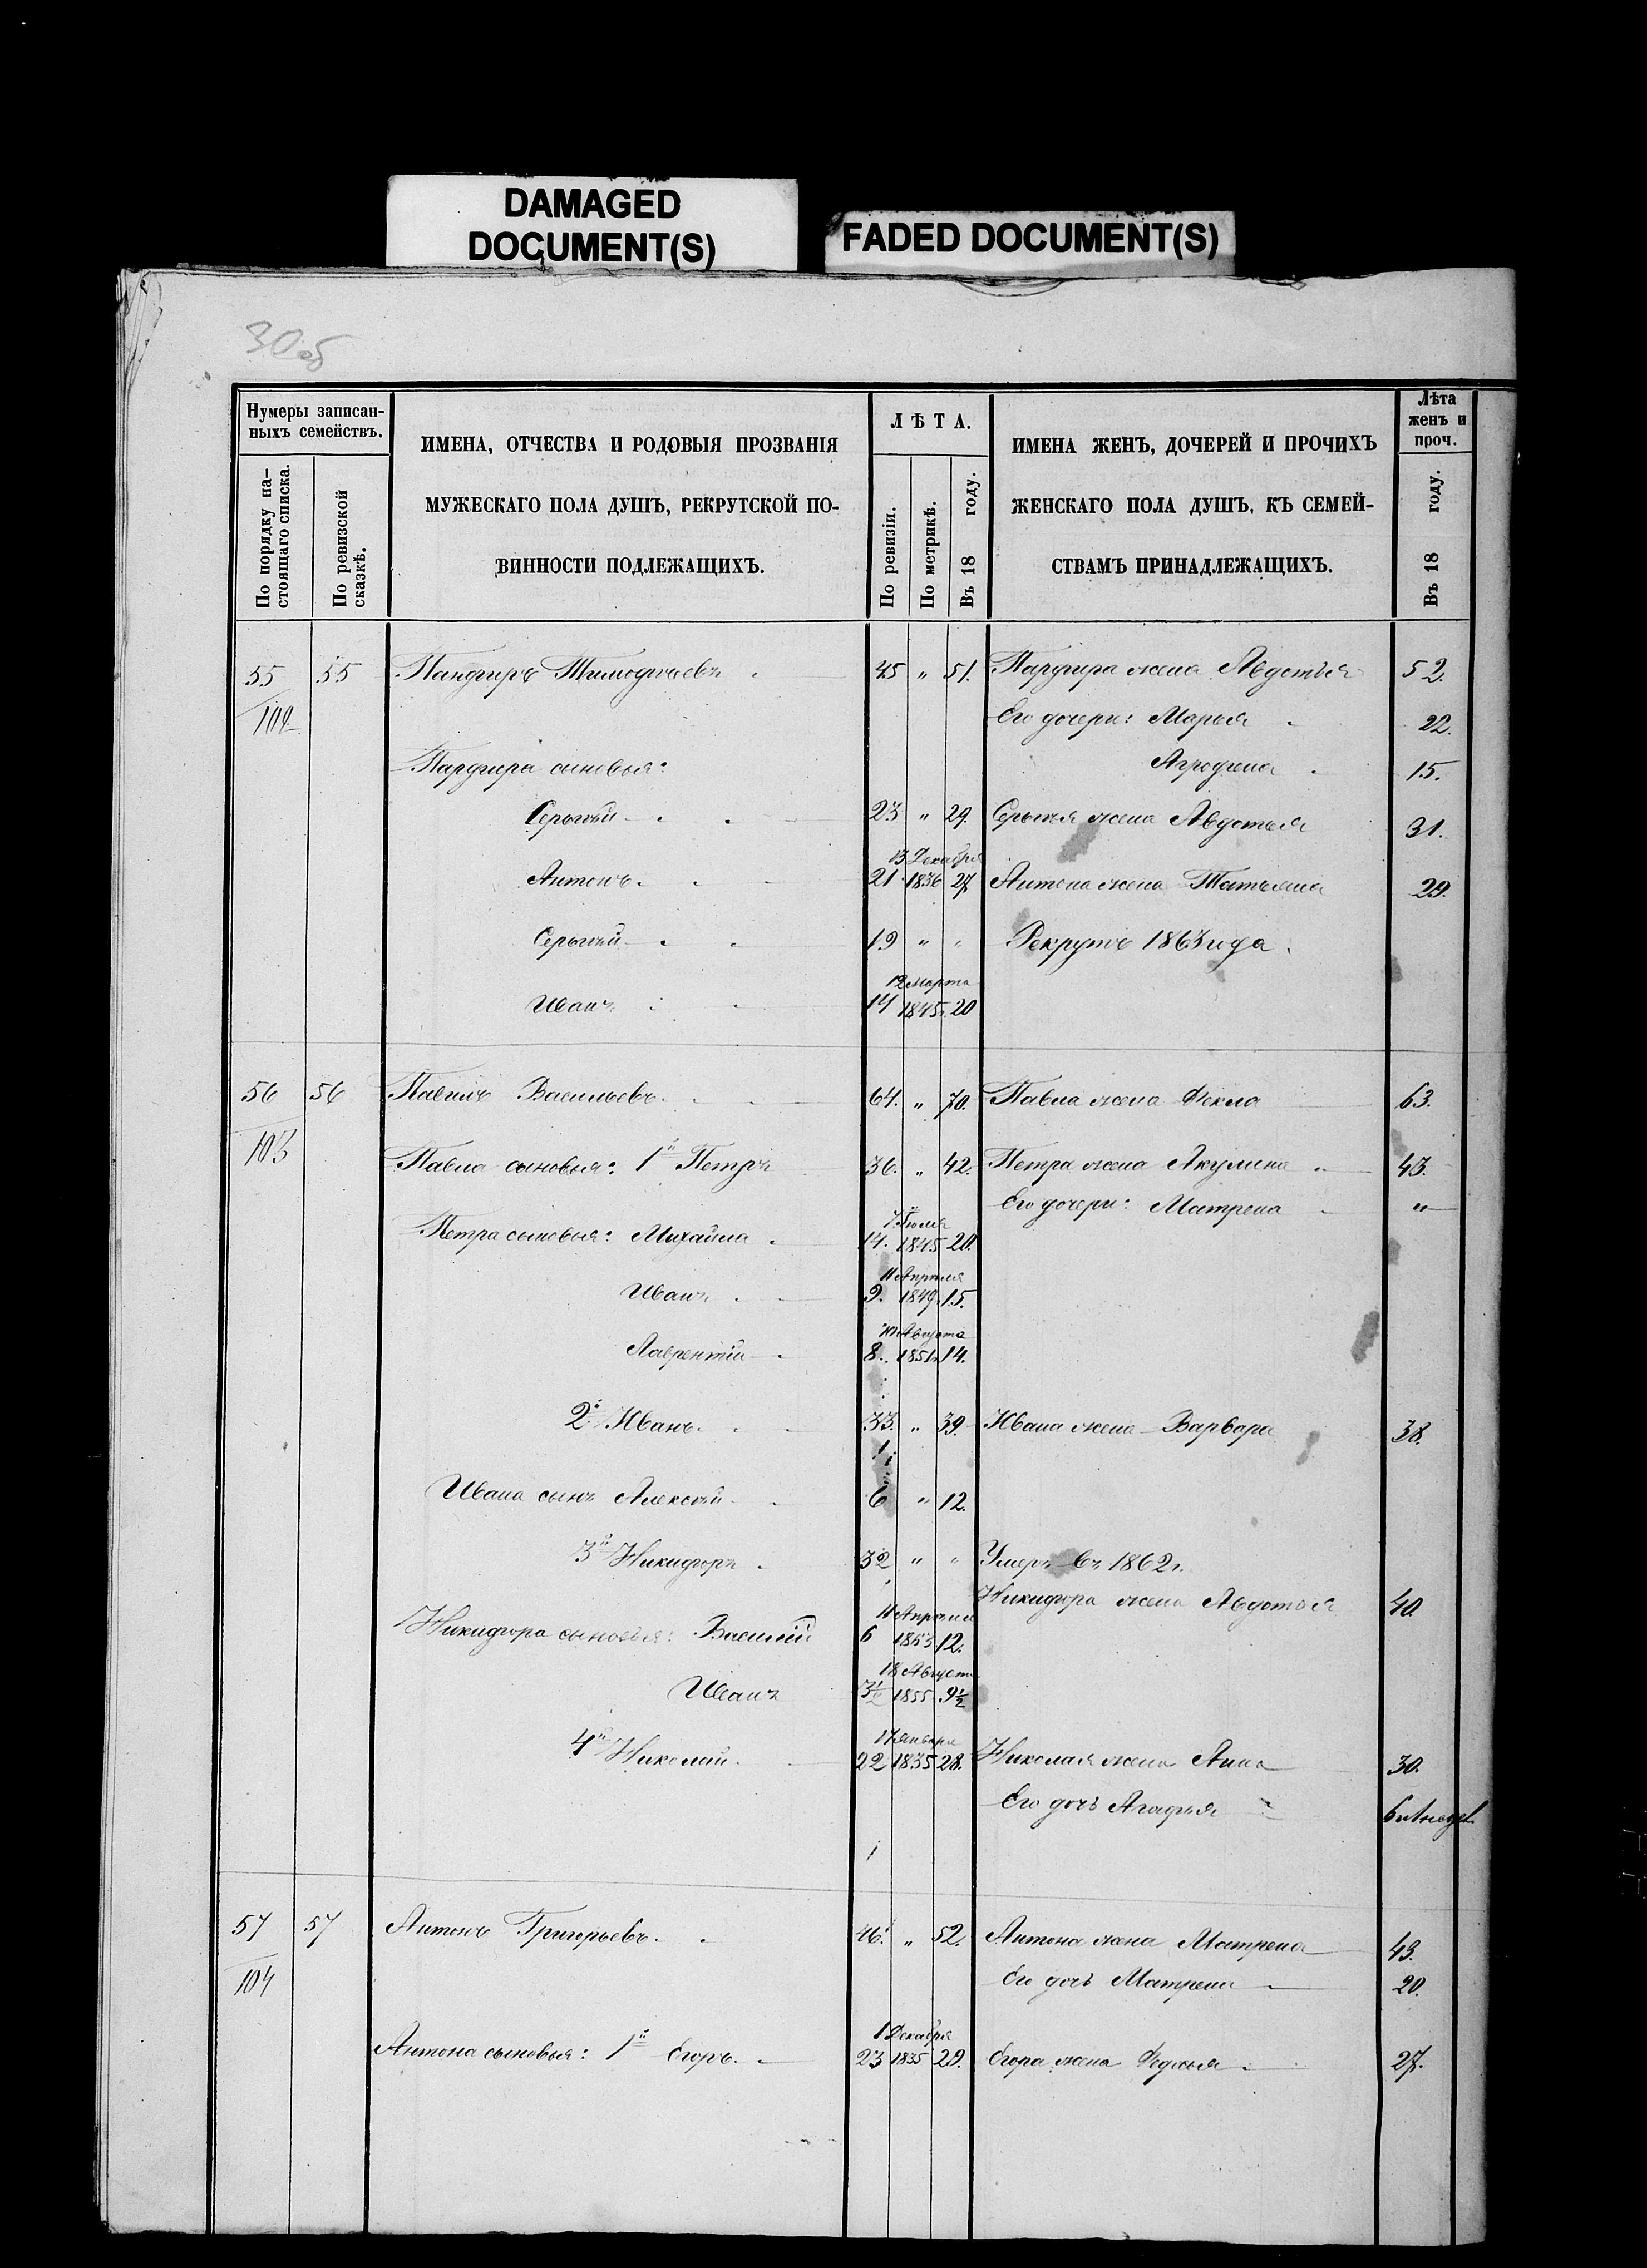 DAMAGED
DOCUMENT(S)
FADED DOCUMENT(S)
30об
Нумеры записан-
ныхъ семействъ.
По порядку на-
стоящаго списка.
По ревизской
сказкѣ.
ИМЕНА, ОТЧЕСТВА И РОДОВЫЯ ПРОЗВАНІЯ
МУЖЕСКАГО ПОЛА ДУШЪ, РЕКРУТСКОЙ ПО-
ВИННОСТИ ПОДЛЕЖАЩИХЪ.
ЛѢТА.
По ревизіи.
По метрикѣ.
Въ 18 году.
ИМЕНА ЖЕНЪ, ДОЧЕРЕЙ И ПРОЧИХЪ
ЖЕНСКАГО ПОЛА ДУШЪ, КЪ СЕМЕЙ-
СТВАМЪ ПРИНАДЛЕЖАЩИХЪ.
Лѣта
женъ и
проч.
Въ 18 году.
55 55 Панфиръ Тимофѣевъ 45 " 51. Парфира жена Авдотья 52.
102 Его дочери: Марья 22.
Парфира сыновья: Агрофена 15.
Сергѣй 23 " 29. Сергѣя жена Авдотья 31.
13 Декабря
Антонъ 21 1836 27 Антона жена Татьяна 29.
Сергѣй 19 " " Рекрутъ 1863 года.
12 марта
Иванъ 14 1845 20
56 56 Павелъ Васильевъ 64. " 70. Павла жена Фекла 63.
103 Павла сыновья: 1й Петръ 36. " 42. Петра жена Акулина 43.
Его дочери: Матрена "
7 Іюля
Петра сыновья: Михайла 14. 1845 20.
11 Апрѣля
Иванъ 9. 1849 15.
Августа
Лаврентій 8. 1851 14.
2й Иванъ 33. " 39. Ивана жена Варвара 38.
Ивана сынъ Алексѣй 6 " 12.
3й Никифоръ 32 " " Умеръ въ 1862 г.
Никифора жена Авдотья 40.
11 Апрѣля
Никифора сыновья: Василій 6 1853 12.
18 Августа
Иванъ 3½ 1855 9½
17 Января
4й Николай 22 1835 28. Николая жена Анна 30.
Его дочь Агафья
57 57 Антонъ Григорьевъ 46. " 52. Антона жена Матрена 43.
104 Его дочь Матрена 20.
1 Декабря
Антона сыновья: 1й Егоръ 23 1835 29. Егора жена Федосья 27.